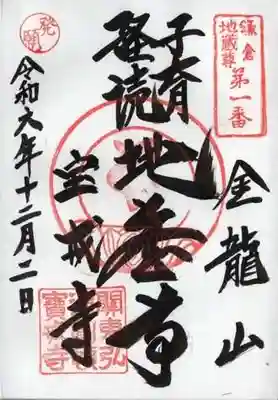 鎌倉
地蔵尊
第一番
金龍山
子育
経読
地蔵尊
宝戒寺
發願
令和六年十二月二日
關東弘
寶戒寺